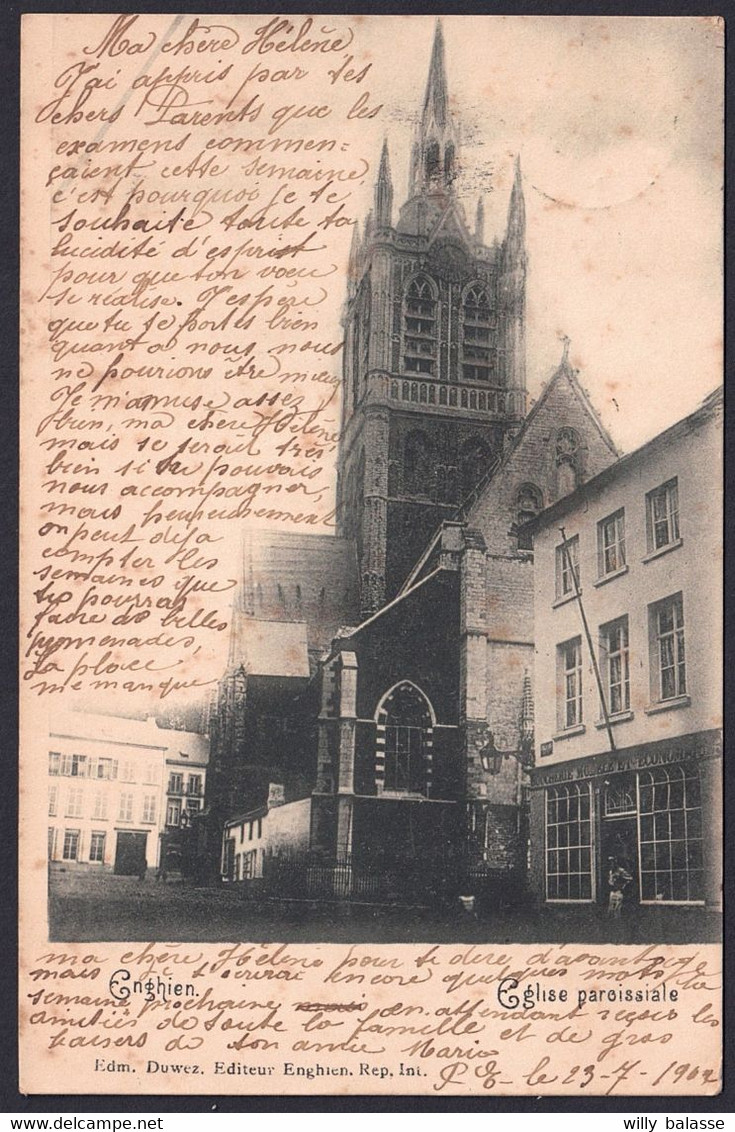 Ma chère Hélène
J'ai appris par tes
chers Parents que les
examens commen=
çaient cette semaine
c'est pourquoi je te
souhaite toute ta
lucidité d'esprit
pour que ton vœu
se réalise. J'espère
que tu te portes bien
quant à nous nous
ne pourions être mieux
Je m'amuse assez
bien, ma chère Hélène
mais se serait très
bien si tu pouvais
nous accompagner,
mais heureusement
on peut déja
compter les
semaines que
tu pourras
faire de belles
promenades,
La place
me manque
ma chère Hélène pour te dire d'avantage
mais je t'écrirai encore quelques mots la
Enghien. Eglise paroissiale
semaine prochaine en attendant reçois les
amitiés de toute la famille et de gros
baisers de ton amie Maria
Edm. Duwez. Editeur Enghien. Rep. Int.
le 23-7-1902
willy balasse